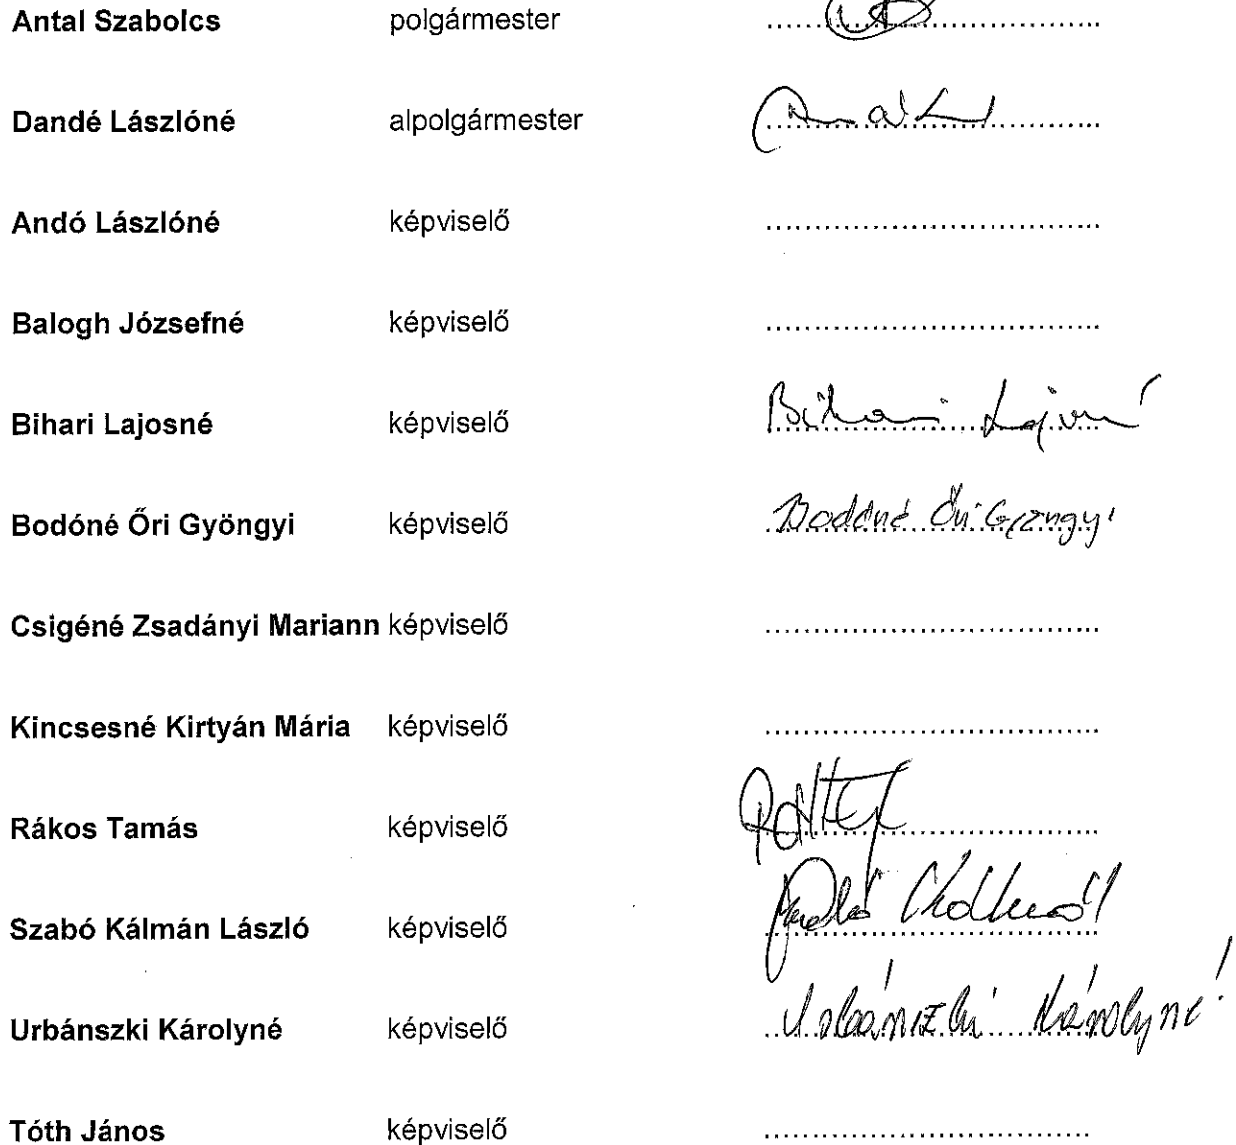 Antal Szabolcs polgármester ........................................
Dandé Lászlóné alpolgármester ........................................
Andó Lászlóné képviselő ........................................
Balogh Józsefné képviselő ........................................
Bihari Lajosné képviselő Bihari Lajosné
Bodóné Őri Gyöngyi képviselő Bodóné Őri Gyöngyi
Csigéné Zsadányi Mariann képviselő ........................................
Kincsesné Kirtyán Mária képviselő ........................................
Rákos Tamás képviselő ........................................
Szabó Kálmán László képviselő Szabó Kálmán
Urbánszki Károlyné képviselő Urbánszki Károlyné
Tóth János képviselő ........................................